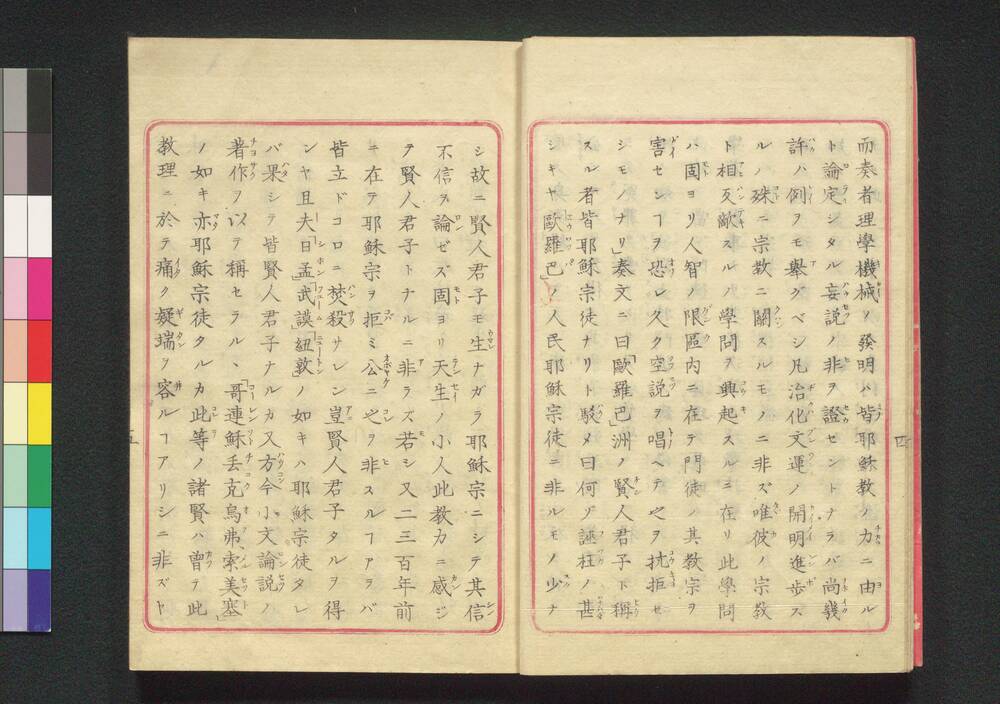 而奏者理學機械ノ發明ハ皆耶穌教ノ力ニ由ル
ト論定シタル妄説ノ非ヲ證セントナラバ尚幾
許ハ例ヲモ擧グベシ凡治化文運ノ開明進歩ス
ルノ殊ニ宗教ニ關スルモノニ非ズ唯彼ノ宗教
ト相反敵スルノ學問ヲ興起スルニ在リ此學問
ハ固ヨリ人智ノ限區内ニ在テ門徒ノ其教宗ヲ
害センヿヲ恐レ久ク空説ヲ唱ヘテ之ヲ抗拒セ
シモノナリ」奏文ニ曰「歐羅巴」洲ノ賢人君子ト稱
スル者皆耶穌宗徒ナリト駁メ曰何ゾ誣枉ノ甚
シキヤ「歐羅巴」ノ人民耶穌宗徒ニ非ルモノ少ナ
四
シ故ニ賢人君子モ生ナガラ耶穌宗ニシテ其信
不信ヲ論ゼズ固ヨリ天生ノ小人此教力ニ感ジ
テ賢人君子トナルニ非ラズ若シ又二三百年前
ニ在テ耶穌宗ヲ拒ミ公ニ之ヲ非スルヿアラバ
皆立ドコロニ焚殺サレン豈賢人君子タルヲ得
ンヤ且夫日「孟」「武謨」「紐敦」ノ如キハ耶穌宗徒タレ
バ果シテ皆賢人君子ナルカ又方今小文論説ノ
著作ヲ以テ稱セラル、「哥連穌」「丢克烏弗、索美塞」
ノ如キ亦耶穌宗徒タルカ此等ノ諸賢ハ曾テ此
教理ニ於テ痛ク疑端ヲ容ルヿアリシニ非ズヤ
五